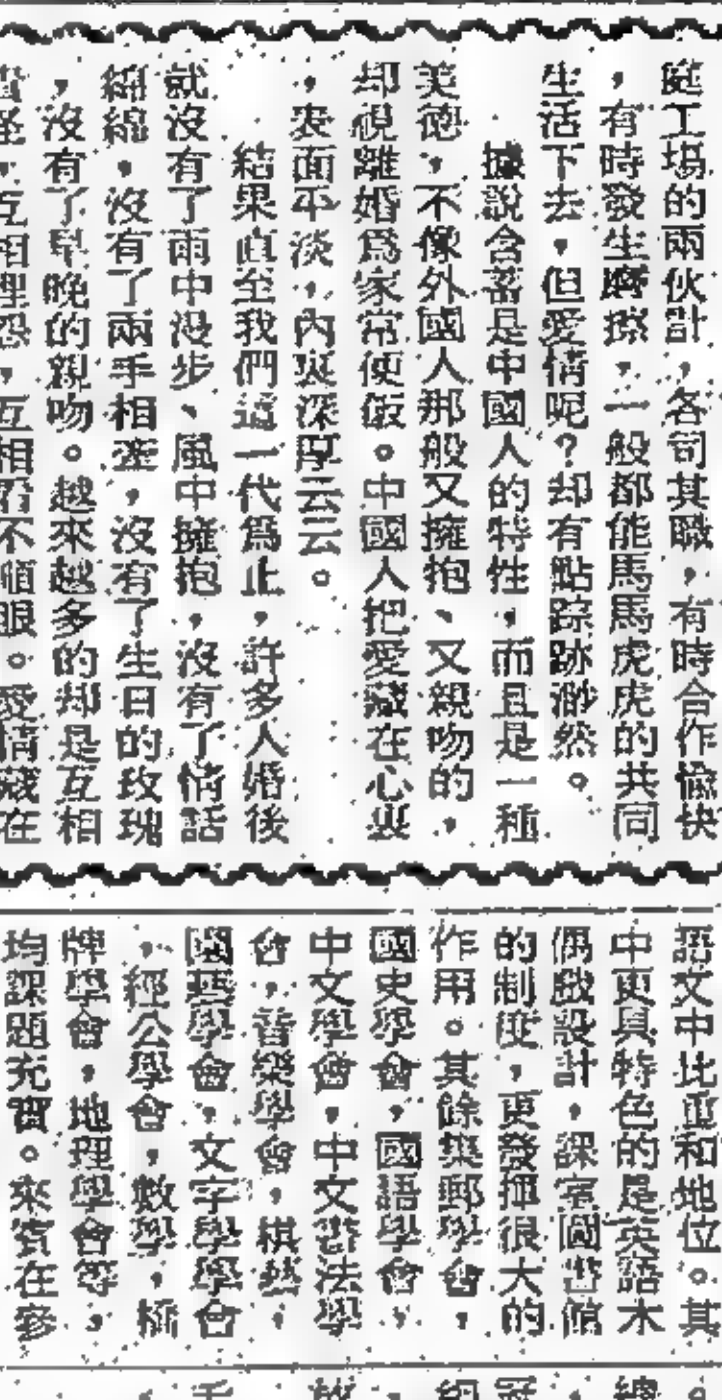 庭工場的兩伙計，各司其職，有時合作愉快
，有時發生磨擦，一般都能馬馬虎虎的共同
生活下去，但愛情呢？却有點踪跡渺然。
據說含蓄是中國人的特性，而且是一種
美德，不像外國人那般又擁抱、又親吻的，
却視離婚爲家常便飯。中國人把愛藏在心裏
，表面平淡，內裏深厚云云。
結果直至我們這一代爲止，許多人婚後
就沒有了雨中漫步、風中擁抱，沒有了情話
綿綿，沒有了兩手相牽，沒有了生日的玫瑰
，沒有了早晚的親吻。越來越多的却是互相
責怪，互相埋怨，互相看不順眼。愛情藏在
語文中比重和地位。其
中更具特色的是英語木
偶戲設計，課室圖書館
的制度，更發揮很大的
作用。其餘集郵學會，
國史學會，國語學會，
中文學會，中文書法學
會，音樂學會，棋藝，
園藝學會，文字學學會
，經公學會，數學，橋
牌學會，地理學會等，
均課題充實。來賓在參